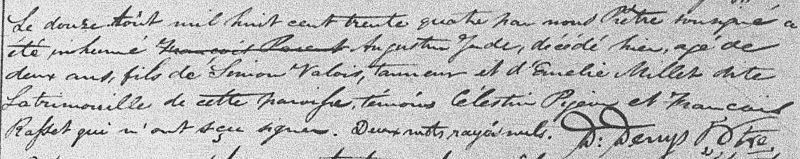 Le douze Août mil huit cent trente quatre par nous Prêtre soussigné a
été inhumé François Parent Augustin Jude, décédé hier, agé de
deux ans, fils de Simon Valois, tanneur et d'Emelie Millet dite
Latrimouille de cette paroisse, témoins Célestin Pigeon et François
Rasset qui n'ont sçu signer. Deux mots rayés nuls. D: Denys Ptre